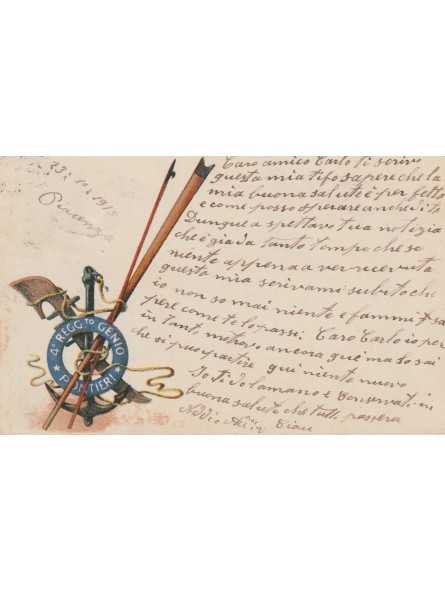 23, 10, 1915
Piacenza
Caro amico Carlo ti scrivo
questa mia ti fo sapere che la
mia buona salute è per fetto
e come posso sperare anche di te
Dunque a spettavo tua notizia
che è gia da tanto tempo che se
niente appena a ver ricevuta
questa mia scrivami subito che
io non so mai niente e fammi sa
pere come te lo passi. Caro Carlo io per
in tant motrovo ancora qui ma to sai
che si puo partire qui niente nuovo
Io ti do la mano e Conservati in
buona salute che tutti passera
Addio Ciau
4° REGG.to GENIO
PONTIERI